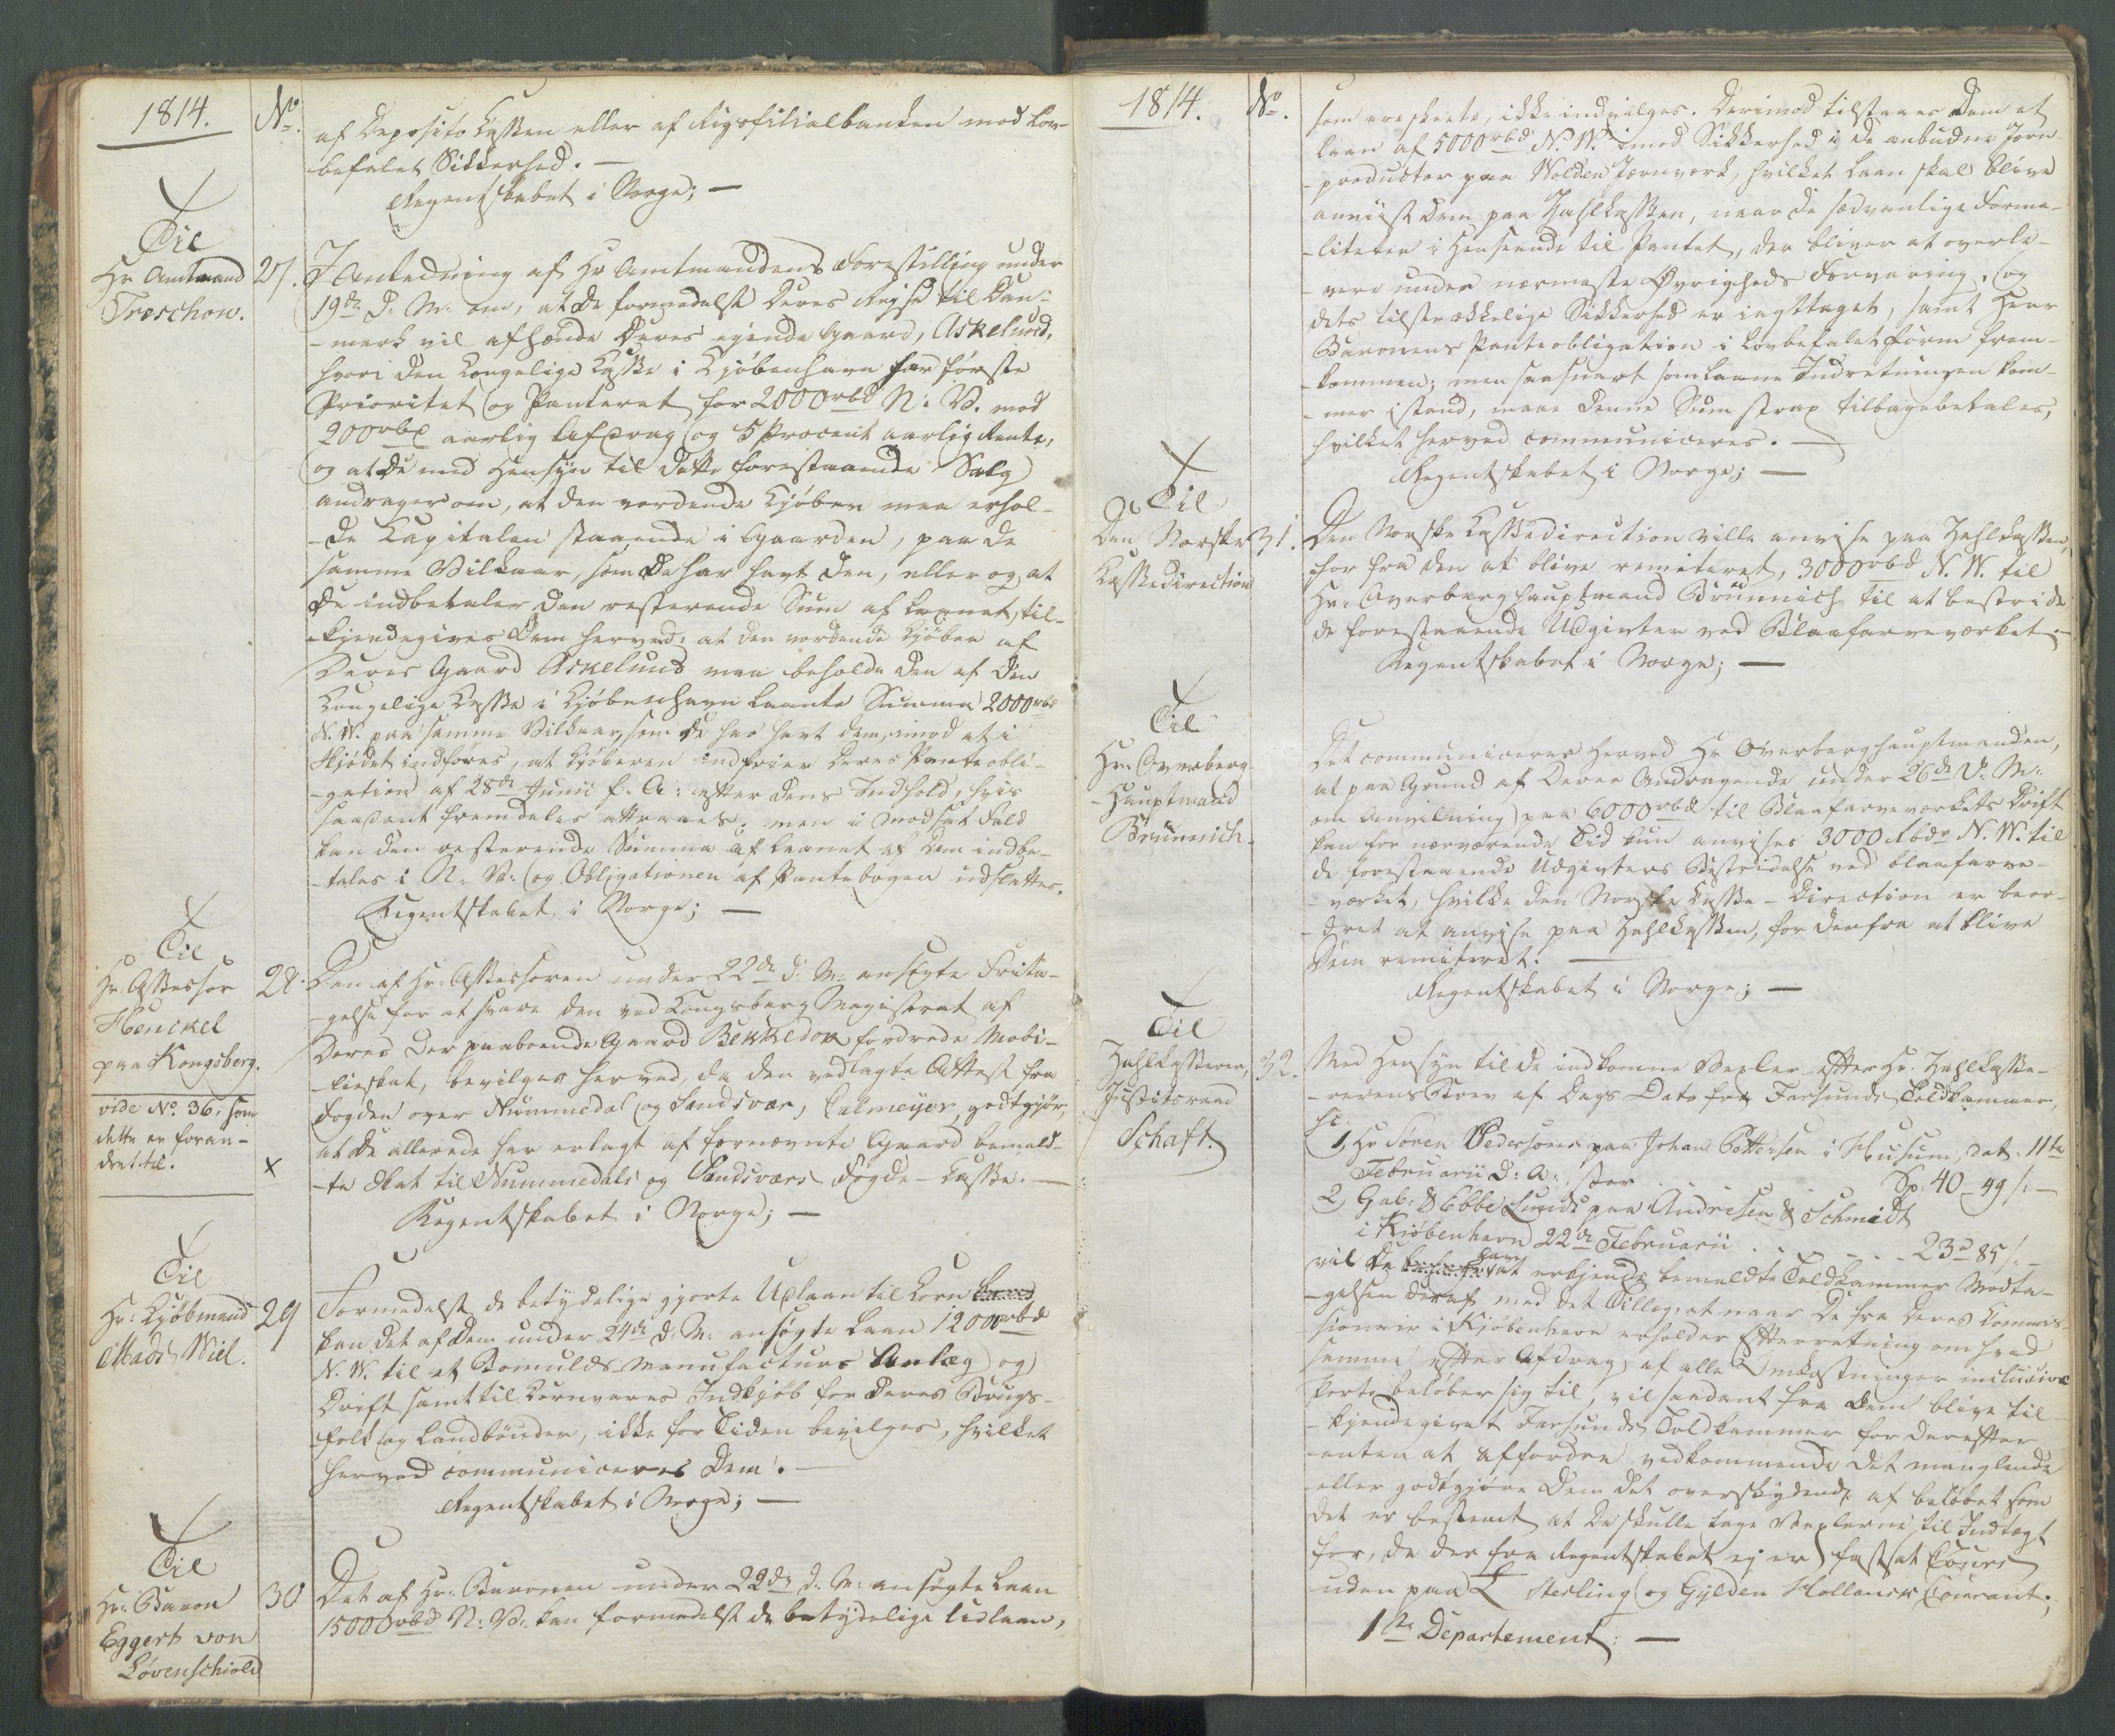 1814.
No.
af Deposito Cassen eller af Rigsfilialbanken mod lov-
befalet Sikkerhed. —
Regentskabet i Norge; —
Til
Hr Amtmand
Treschow.
27.
I Anledning af Hr Amtmandens Forestilling under
19de d. M. om, at De formedelst Deres Reyse til Dan-
-mark vil afhænde Deres ejende Gaard, Askelund,
hvori den Kongelige Casse i Kjøbenhavn har første
Prioritet og Panteret for 2000 rbd N: V. mod
200 rbd aarlig Afdrag og 5 Procent aarlig Rente,
og at De med Hensyn til dette forestaaende Salg
andrager om, at den vordende Kjøber maa erhol-
-de Capitalen staaende i Gaarden, paa de
samme Vilkaar, som De har havt den, eller og at
De indbetaler den resterende Sum af Laanet, til-
-kjendegives Dem herved: at den vordende Kjøber af
Deres Gaard Askelund maa beholde den af den
Kongelige Casse i Kjøbenhavn laante Summa 2000 rbd
N. W. paa samme Vilkaar, som De har havt dem, imod at i
Skjødet indføres, at Kjøberen indfrier Deres Panteobli-
-gation af 28de Junii f. A: efter dens Indhold, hvis
saadant fremdeles attraaes; men i modsat Fald
kan den resterende Summa af Laanet af Dem indbe-
-tales i N. V: og Obligationen af Pantebogen udslettes.
Regentskabet i Norge; —
Til
Hr. Assessor
Henckel
paa Kongsberg.
28.
Den af Hr. Assessoren under 22de d. M. ansøgte Frita-
-gelse for at svare den ved Kongsberg Magistrat af
Deres der paaboende Gaard Bekkedok fordrede Mobi-
-lieskat, bevilges herved, da den vedlagte Attest fra
Fogden over Nummedal og Sandsvær, Calmeyer, godtgjør,
at De allerede har erlagt af fornævnte Gaard bemeld-
-te Skat til Nummedals og Sandsværs Fogde-Casse. —
Regentskabet i Norge; —
vide No. 36. som
dette er foran-
dret til.
x
Til
Hr. Kjøbmand
Mads Wiel.
29
Formedelst de betydelige gjorte Udlaan til Korn
kan det af Dem under 24de d. M. ansøgte Laan 12000 rbd
N. W. til et Bomulds Manufacturs Anlæg og
Drift samt til Kornvares Indkjøb for Deres Brugs-
-folk og Landbønder, ikke for Tiden bevilges, hvilket
herved communiceres Dem. —
Regentskabet i Norge; —
Til
Hr. Baron
Eggert von
Løvenschiold
30
Det af Hr. Baronen under 22de d. M. ansøgte Laan
15000 rbd N: V. kan formedelst de betydelige Udlaan,
1814.
No.
som ere skeete, ikke indvilges. Derimod tilstaaes Dem et
Laan af 5000 rbd N. W. imod Sikkerhed i de anbudne Jern-
-producter paa Wolden Jernverk, hvilket Laan skal blive
anviist Dem paa Zahlkassen, naar de sædvanlige Forma-
-liteter i Henseende til Pantet, der bliver at overle-
-vere under nærmeste Øvrigheds Forvaring, og
dets tilstrækkelige Sikkerhed er iagttaget, samt Herr
Baronens Panteobligation i lovbefalet Form frem-
-kommen; men saasnart som Laane Indretningen kom-
-mer istand, maae denne Sum strax tilbagebetales,
hvilket herved communiceres. —
Regentskabet i Norge; —
Til
Den Norske
Cassedirection
31.
Den Norske Cassedirection ville anvise paa Zahlkassen,
for fra den at blive remiteret, 3000 rbd N. W. til
Hr. Overberghauptmand Brünnich til at bestride
de forestaaende Udgivter ved Blaafarveværket. —
Regentskabet i Norge; —
Til
Hr. Overberg-
-Hauptmand
Brünnich.
Det communiceres herved Hr Overberghauptmanden,
at paa Grund af Deres Andragende under 26de d. M.
om Anviisning paa 6000 rbd til Blaafarveværkets Drift
kan for nærværende Tid kun anvises 3000 Rbdr N. W. til
de forestaaende Udgivters Bestridelse ved Blaafarve-
-værket, hvilke den Norske Casse-Direction er beor-
-dret at anvise paa Zahlkassen, for derfra at blive
Dem remiteret. —
Regentskabet i Norge; —
Til
Zahlkasserer,
Justitsraad
Schaft.
32.
Med Hensyn til de indkomne Vexler efter Hr. Zahlkasse-
-rerens Brev af Dags Dato fra Farsunds Toldkammer,
1, Hr Søren Pedersens paa Johan Pettersen i Husum, dat. 11te
Februarii d: A: stor Sp. 40 49 s. —
2, Gab: & Ebbe Lunds paa Andresen & Schmidt
i Kjøbenhavn 22de Februarii . . . . 23 d 85 s. —
vil De have at erkjende bemeldte Toldkammer Modta-
-gelsen deraf med det Tillæg, at naar De fra Deres Commis-
sionair i Kjøbenhavn erholder Efterretning om hvad
samme efter Afdrag af alle Omkostninger inclusive
Porto beløber sig til, vil saadant fra Dem blive til-
-kjendegivet Farsunds Toldkammer for derefter
enten at affordre vedkommende det manglende
eller godtgjøre Dem det overskydende af beløbet som
det er bestemt at De skulle tage Vexlerne til Indtægt
for, da der fra Regentskabet ej er fastsat Cours
uden paa £ Sterling og Gylden Hollansk Courant;
1ste Departement: —